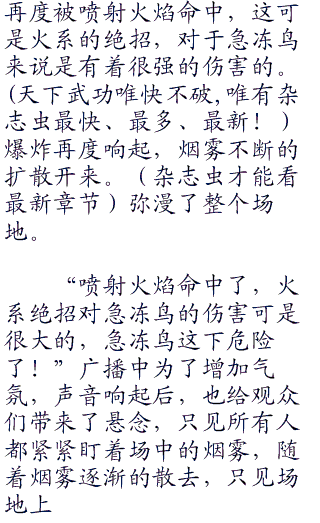 再度被喷射火焰命中，这可
是火系的绝招，对于急冻鸟
来说是有着很强的伤害的。
(天下武功唯快不破,唯有杂
志虫最快、最多、最新！）
爆炸再度响起，烟雾不断的
扩散开来。（杂志虫才能看
最新章节）弥漫了整个场
地。
“喷射火焰命中了，火
系绝招对急冻鸟的伤害可是
很大的，急冻鸟这下危险
了！”广播中为了增加气
氛，声音响起后，也给观众
们带来了悬念，只见所有人
都紧紧盯着场中的烟雾，随
着烟雾逐渐的散去，只见场
地上